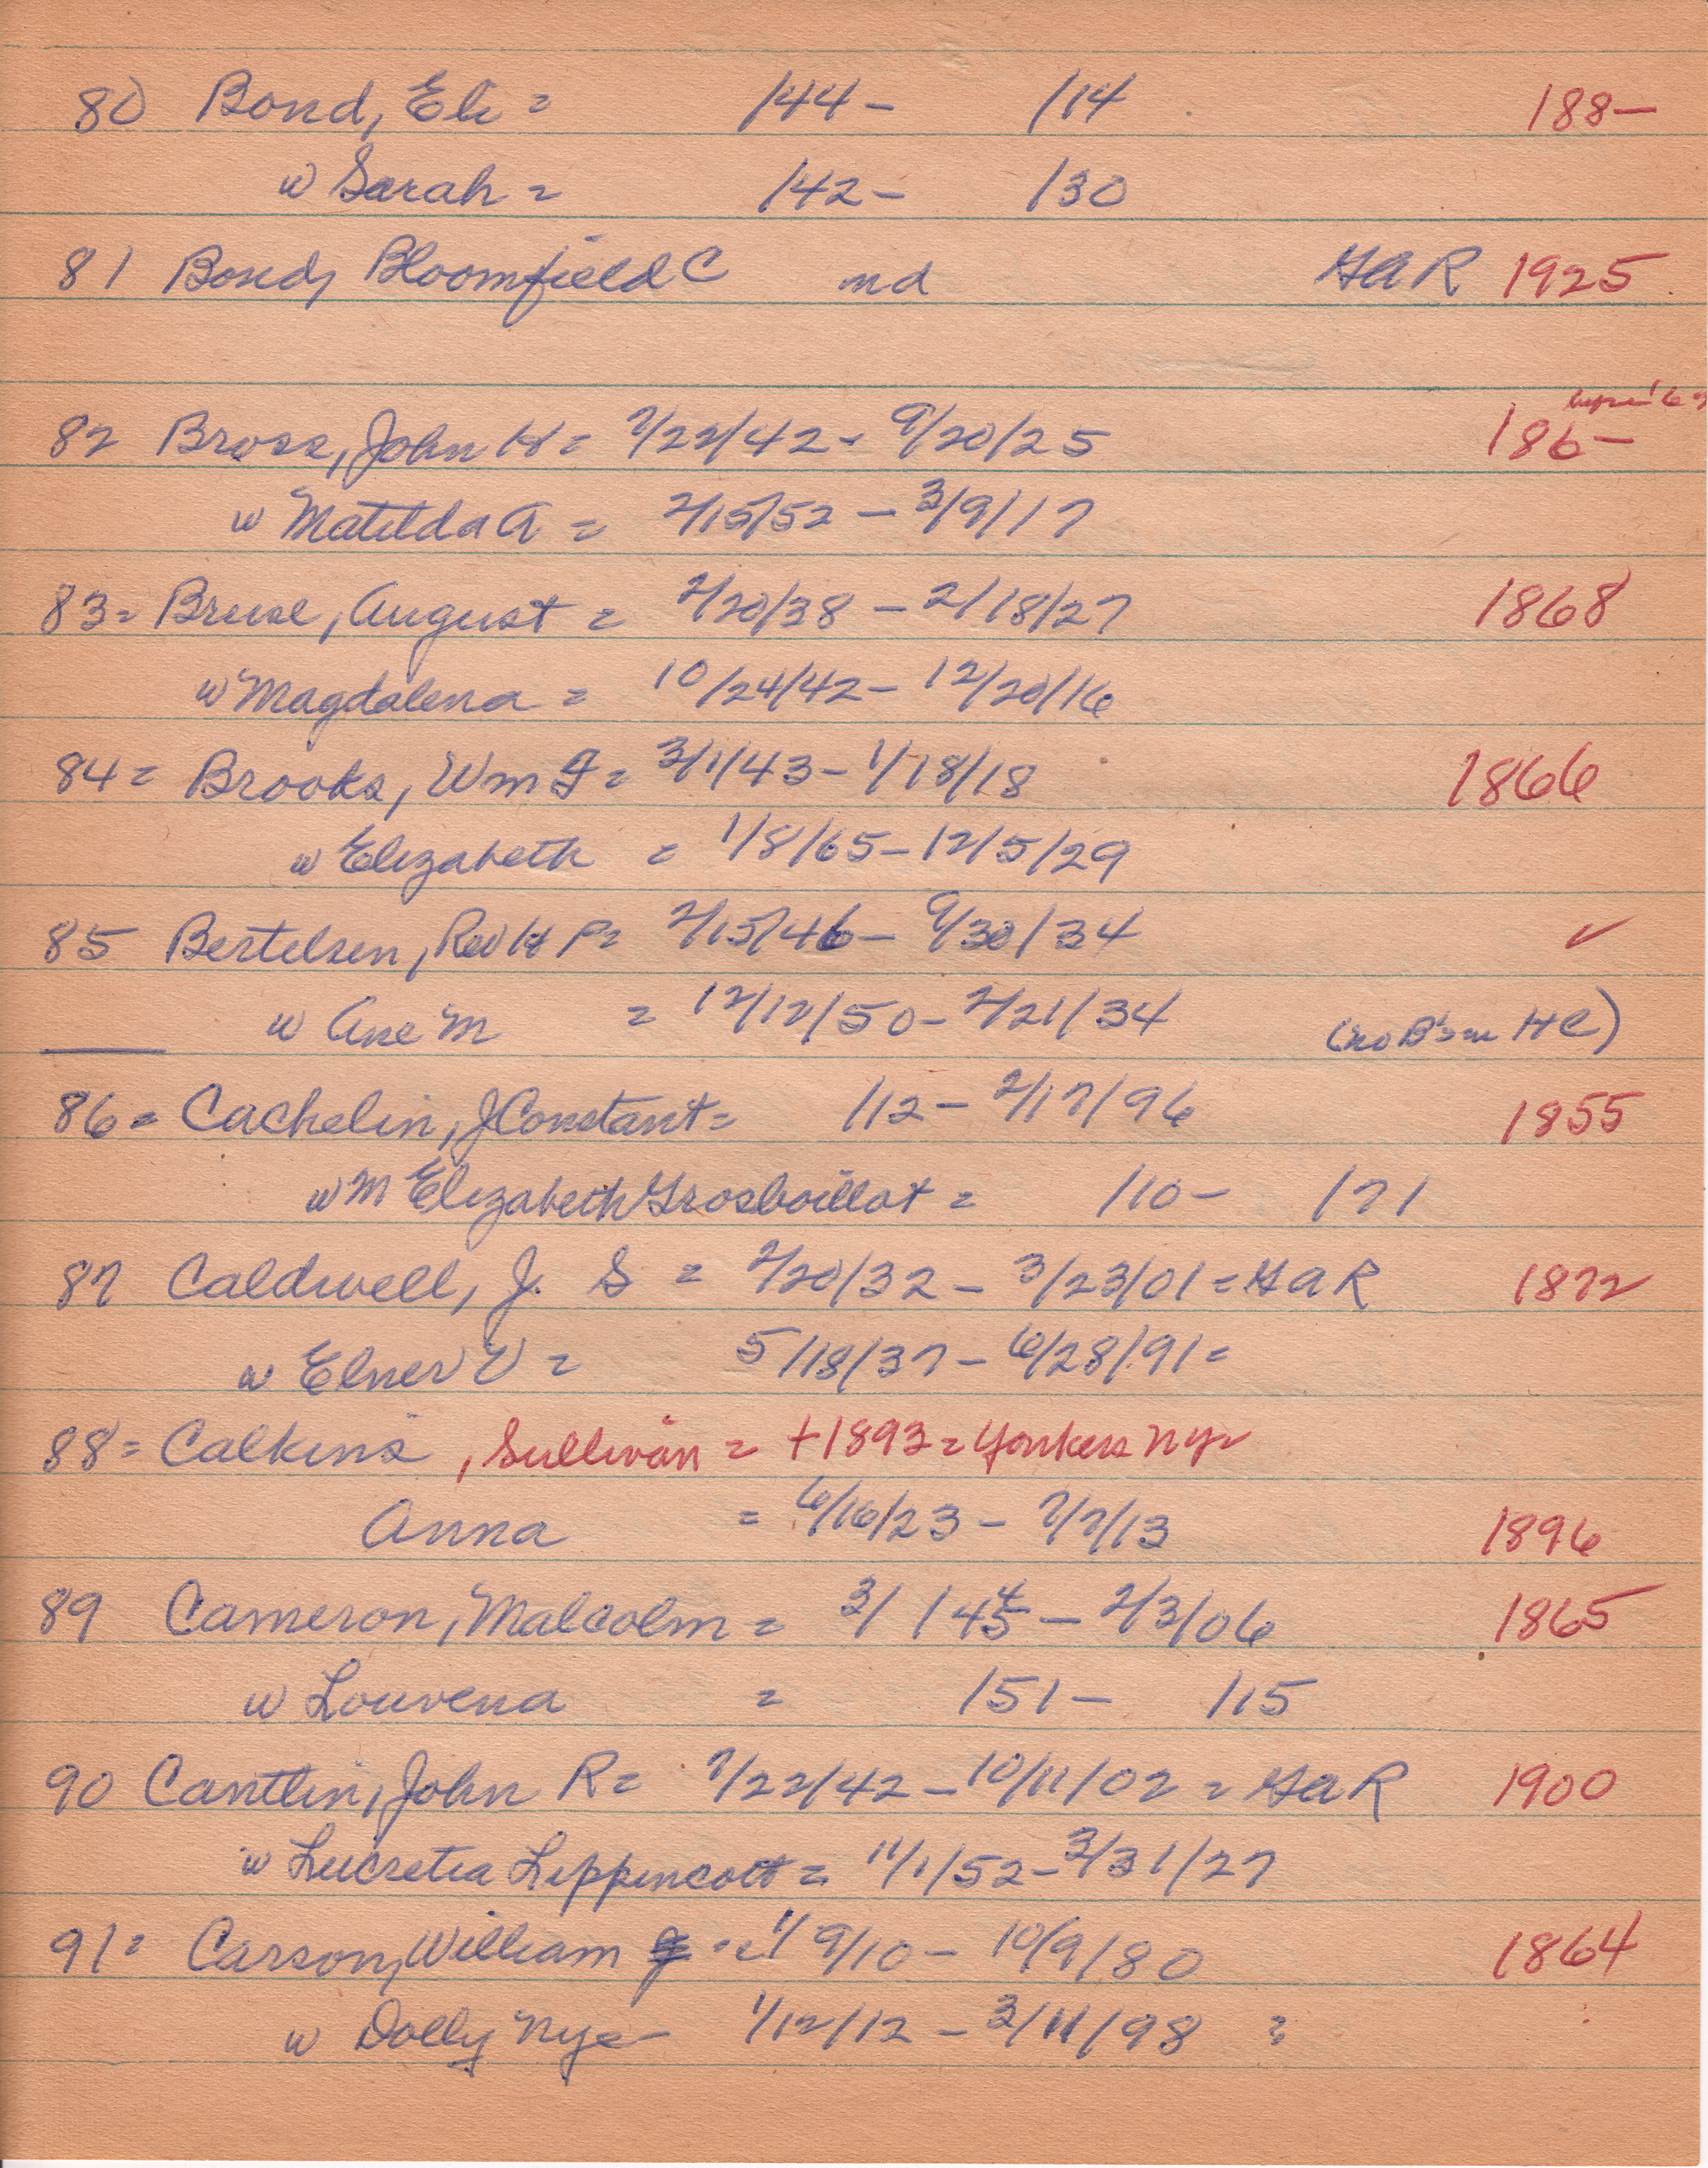 80 Bond, Eli = /44 - /14 188-
w Sarah = /42 - /30
81 Bond, Bloomfield C nd GAR 1925
82 Bross, John H = 7/22/42 - 9/20/25 186-
w Matilda A = 2/15/52 - 3/9/17
83 = Bruse, August = 2/20/38 - 2/18/27 1868
w Magdalena = 10/24/42 - 12/20/16
84 = Brooks, Wm F = 3/1/43 - 1/18/18 1866
w Elizabeth = 1/8/65 - 12/5/29
85 Bertelsen, Rev H P = 2/15/46 - 9/30/34 ✓
w Ane M = 12/12/50 - 2/21/34 (no B's in HC)
86 = Cachelin, J Constant = /12 - 2/17/96 1855
w M Elizabeth Grosboillot = /10 - /71
87 Caldwell, J. S = 2/20/32 - 3/23/01 = GAR 1872
w Elner E = 5/18/37 - 6/28/91 =
88 = Calkins, Sullivan = +1893 = Yonkers NY
Anna = 6/16/23 - 7/7/13 1896
89 Cameron, Malcolm = 3/ /45 4 - 2/3/06 1865
w Louvena = /51 - /15
90 Cantlin, John R = 7/22/42 - 10/11/02 = GAR 1900
w Lucretia Lippincott = 11/1/52 - 3/31/27
91 = Carson, William = 1/9/10 - 10/9/80 1864
w Dolly Nye - 1/12/12 - 3/11/98 =